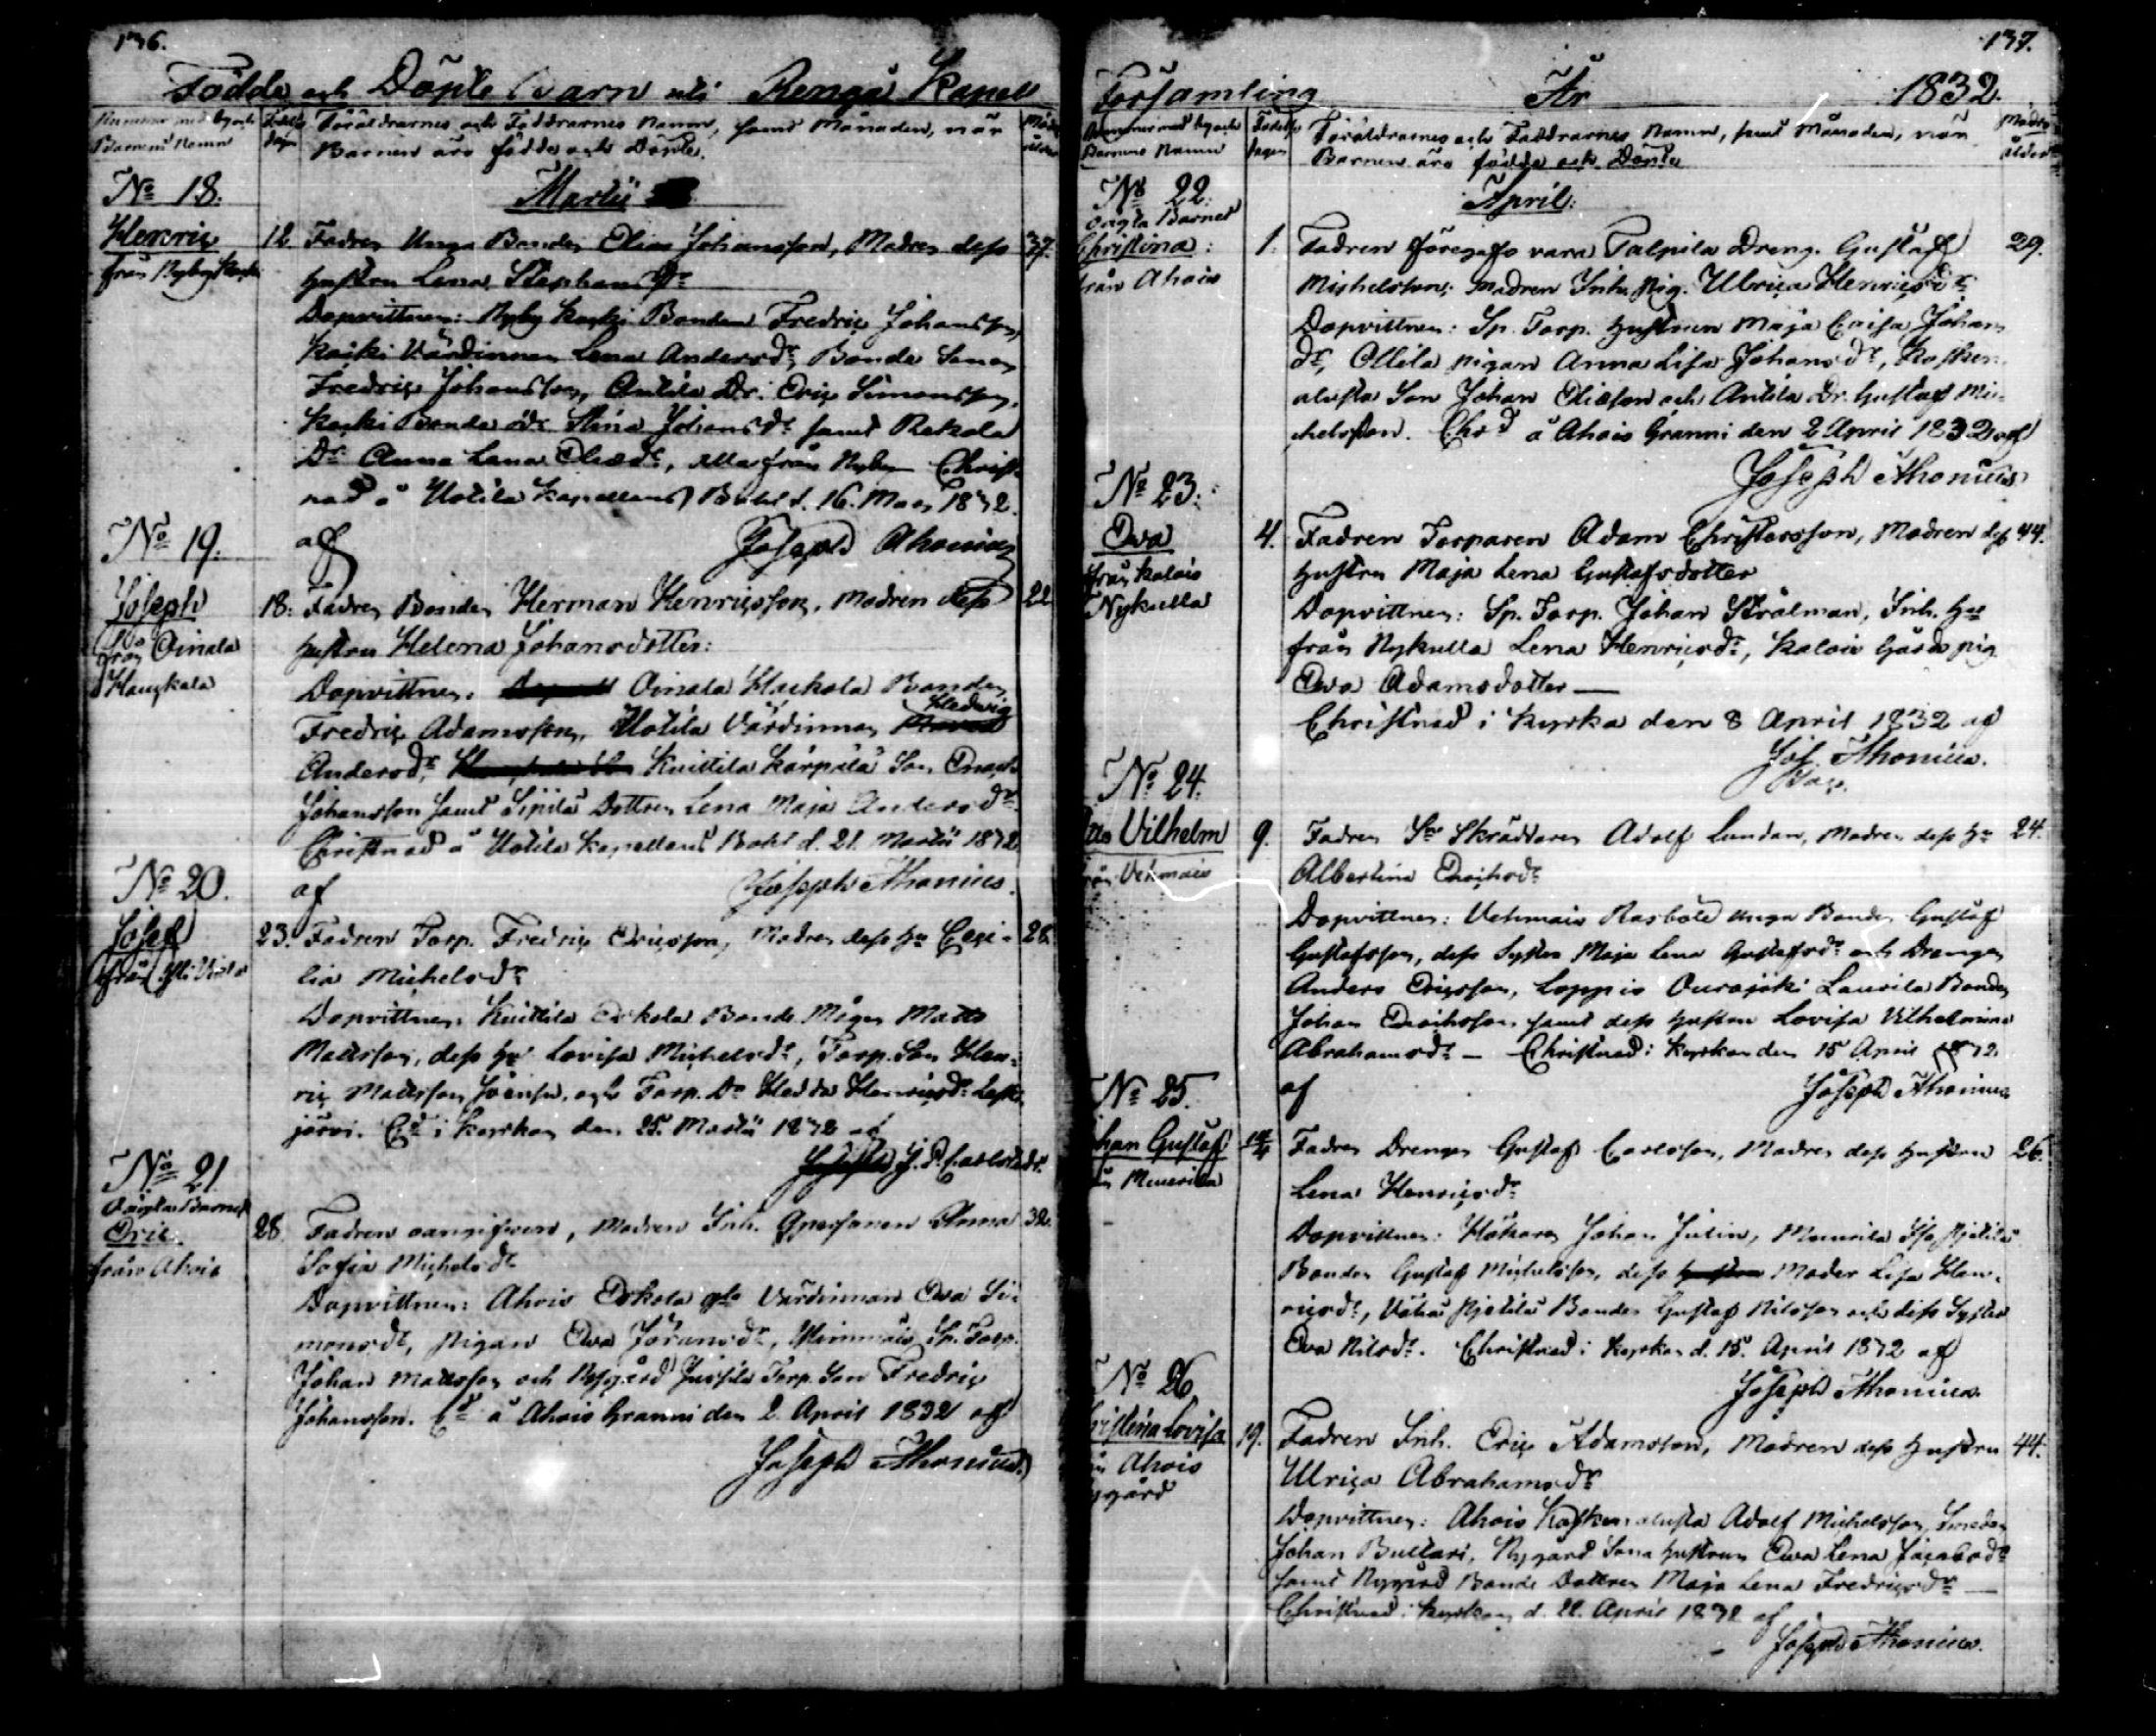 136.
Födde och Döpte Barn uti Rengå Kapell
Nummer med by och
Barnens Namn
Födelse
dagen
Föräldrarnes och Faddrarnes Namn, samt Månaden, när
Barnen äro födde och Döpte.
Martii
No 18.
Henric
från Nyby Kaski
12 Fadren Unga Bonden Elias Johansson, Modren dess 37.
hustru Lena Stephansdr
Dopvittnen: Nyby Kaski Bonden Fredric Johansson,
Kaski Värdinnan Lena Andersdr, Bonde Sonen
Fredric Johansson, Anttila Dr. Eric Simonsson,
Kaski Bonde dr Stina Johansdr samt Rekola
Dr Anna Lena Eliædr, alla från Nyby Christ-
nad å Uotila Kapellans Bohl d. 16. Mars 1832.
af Joseph Ahonius
No 19.
Joseph
från Oinala
Haukala
18. Fadren Bonden Herman Henricsson, Modren dess 22
hustru Helena Johansdotter:
Dopvittnen. Oinala Haukala Bonden
Fredric Adamsson, Uotila Värdinnan Hedwig
Andersdr, Knittila Kärpälä Son Enoch
Johansson samt Sipilä Dottren Lena Maja Andersdr.
Christnad å Uotila Kapellans Bohl d. 21. Martii 1832
af Joseph Ahonius.
No 20.
Josef
från
23. Fadren Torp. Fredric Ericsson, Modren dess hu Ceci- 28.
lia Michelsdr
Dopvittnen: Knittila Erkola Bonde Mågen Matts
Mattsson, dess hu Lovisa Michelsdr, Torp. Son Hen-
ric Mattsson och Torp. Dr Hedda Henricsdr
järvi. Cd i kyrkan den 25. Martii 1832 af
No 21.
Oägta Barnet
Eric
från Ahois
28. Fadren oangifven, Modren Inh. Qvarsonen Anna 32.
Sofia Michelsdr
Dopvittnen: Ahois Erkola gla Värdinnan Eva Si-
monsdr, pigan Eva Jöransdr, Minnmäis Sp. Torp.
Johan Mattsson och Nygård Jussila Torp. Son Fredric
Johansson. Cd å Ahois Granni den 2. April 1832 af
Joseph Ahonius.
137.
Församling År 1832.
Nummer med by och
Barnens Namn
Födelse
dagen
Föräldrarnes och Faddrarnes Namn, samt Månaden, när
Barnen äro födde och Döpte
Modrens
ålder
April.
No 22.
Oägta Barnet
Christina:
från Ahois
1. Fadren föregafs vara Talpila Dreng. Gustaf 29.
Michelsson; Modren Inh. Pig. Ulrica Henricsdr
Dopvittnen: Sp. Torp. hustrun Maja Caisa Johans
dr, Ollila pigan Anna Lisa Johansdr, Kosken-
alusta Son Johan Eliasson och Anttila Dr. Gustaf Mi-
chelsson. Chrd å Ahois Granni den 2 April 1832 af
Joseph Ahonius
No 23.
Eva
från Kalois
Nykulla
4. Fadren Torparen Adam Christersson, Modren dess 44.
hustru Maja Lena Gustafsdotter
Dopvittnen: Sp. Torp. Johan Strålman, Inh. hu
från Nykulla Lena Henricsdr, Kalois Gårds pig.
Eva Adamsdotter —
Christnad i Kyrka den 8 April 1832 af
Jos. Ahonius.
No 24.
Vilhelm
från Vehmais
9. Fadren Skräddaren Adolf Lundan, Modren dess hu 24.
Albertina Enochsdr
Dopvittnen: Vehmais Rasbole unga Bonden Gustaf
Gustafsson, dess Syster Maja Lena Gustafsdr och Drengen
Anders Ericsson, Loppis Ourajoki Laurila Bonden
Johan Enochsson samt dess hustru Lovisa Vilhelmina
Abrahamsdr — Christnad i kyrkan den 15 April 1832.
af Joseph Ahonius
No 25.
Johan Gustaf
Meurila
Fadren Drengen Gustaf Carlsson, Modren dess hustru 26.
Lena Henricsdr
Dopvittnen: Håkaren Johan Julin, Meurila Iso Pietilä
Bonden Gustaf Michelsson, dess Moder Lisa Hen-
ricsdr, Vähä Pietilä Bonden Gustaf Nilsson och dess Syster
Eva Nilsdr. Christnad i kyrkan d. 15. April 1832 af
Joseph Ahonius.
No 26
Christina Lovisa
från Ahois
Nygård
19. Fadren Inh. Eric Adamsson, Modren dess hustru 44.
Ulrica Abrahamsdr
Dopvittnen: Ahois Koskenalusta Adolf Michelsson, Smeden
Johan Bultari, Nygård Sona hustrun Eva Lena Jacobsdr
samt Nygård Bonde Dottren Maja Lena Fredricsdr —
Christnad i kyrkan d. 22. April 1832 af
Joseph Ahonius.